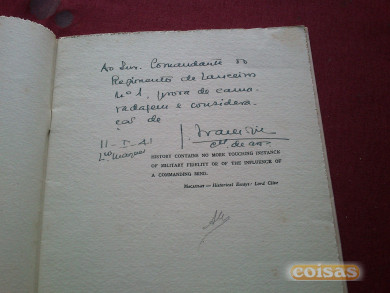 Ao Snr. Comandante do
Regimento de Lanceiros
nº 1, prova de cama-
radagem e considera-
ção de
11-I-41
HISTORY CONTAINS NO MORE TOUCHING INSTANCE
OF MILITARY FIDELITY OR OF THE INFLUENCE OF
A COMMANDING MIND.
Macaulay — Historical Essays: Lord Clive
coisas